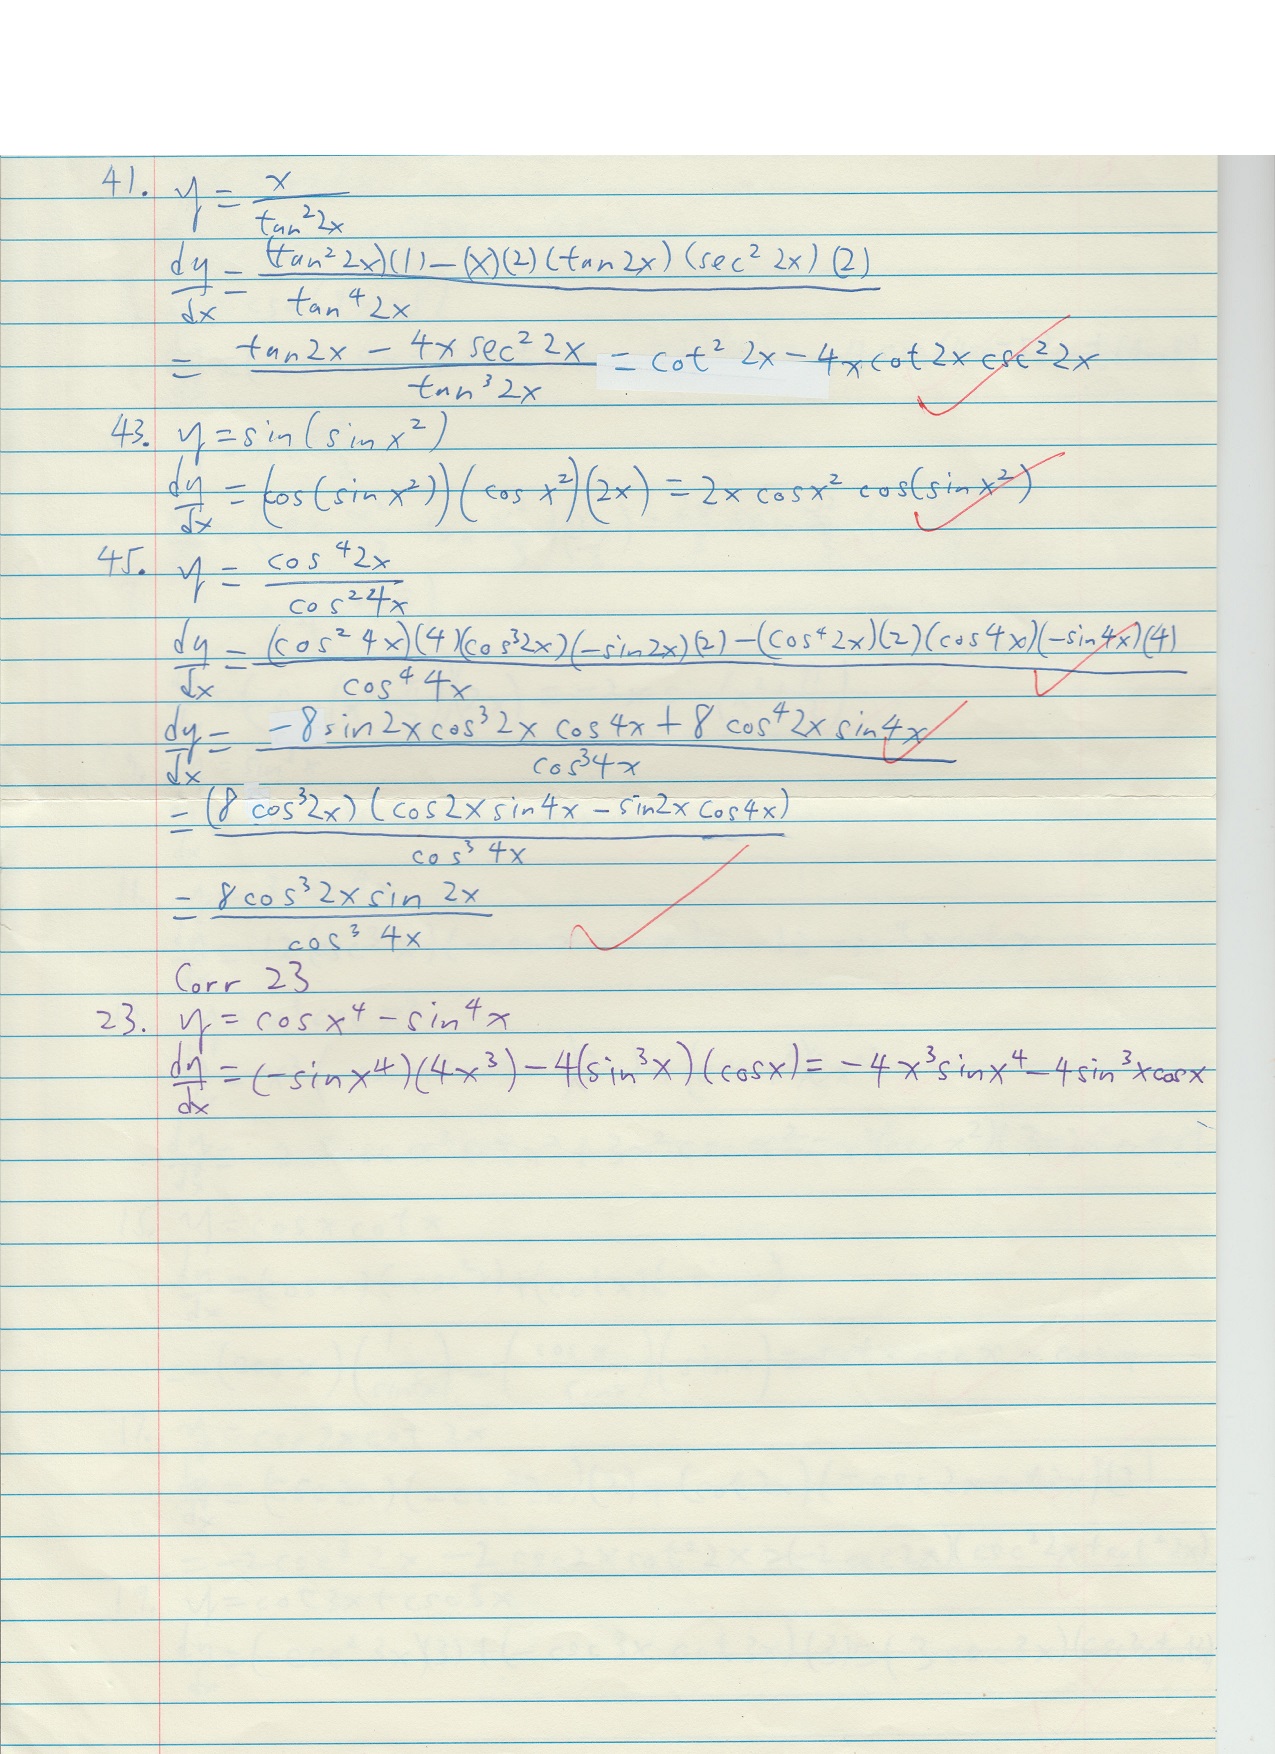 41. y = x / tan² 2x
dy/dx = (tan² 2x)(1) − (x)(2)(tan 2x)(sec² 2x)(2) / tan⁴ 2x
= tan 2x − 4x sec² 2x / tan³ 2x = cot² 2x − 4x cot 2x csc² 2x
43. y = sin(sin x²)
dy/dx = (cos(sin x²))(cos x²)(2x) = 2x cos x² cos(sin x²)
45. y = cos⁴ 2x / cos² 4x
dy/dx = (cos² 4x)(4)(cos³ 2x)(−sin 2x)(2) − (cos⁴ 2x)(2)(cos 4x)(−sin 4x)(4) / cos⁴ 4x
dy/dx = −8 sin 2x cos³ 2x cos 4x + 8 cos⁴ 2x sin 4x / cos³ 4x
= (8 cos³ 2x)(cos 2x sin 4x − sin 2x cos 4x) / cos³ 4x
= 8 cos³ 2x sin 2x / cos³ 4x
Corr 23
23. y = cos x⁴ − sin⁴ x
dy/dx = (−sin x⁴)(4x³) − 4(sin³ x)(cos x) = −4x³ sin x⁴ − 4 sin³ x cos x